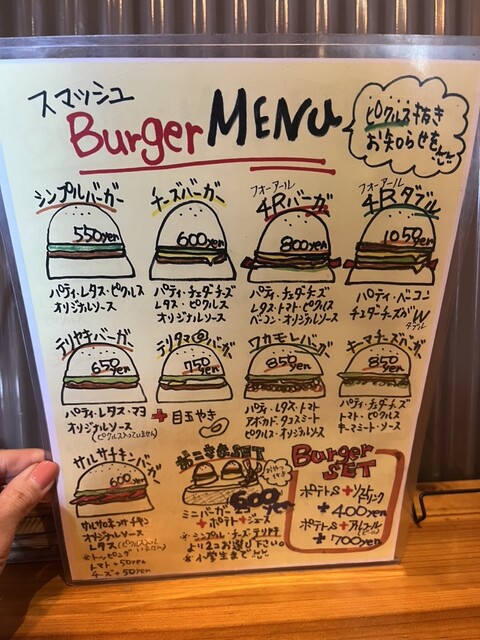 スマッシュ
Burger MENU
ピクルス抜き
お知らせを
シンプルバーガー
550yen
パティ・レタス・ピクルス
オリジナルソース
チーズバーガー
600yen
パティ・チェダーチーズ
レタス・ピクルス
オリジナルソース
フォーアール
4Rバーガー
800yen
パティ・チェダーチーズ
レタス・トマト・ピクルス
ベーコン・オリジナルソース
フォーアール
4Rダブル
1050yen
パティ・ベーコン
チェダーチーズがW
ダブル
テリヤキバーガー
650yen
パティ・レタス・マヨ
オリジナルソース
(ピクルス入っていません)
テリタマバーガー
750yen
+目玉やき
ワカモレバーガー
850yen
パティ・レタス・トマト
アボカド・タコスミート
ピクルス・オリジナルソース
キーマチーズバーガー
850yen
パティ・チェダーチーズ
トマト・ピクルス
キーマミート・ソース
サルサチキンバーガー
600yen
オリジナルソース
レタス
※トッピング
トマト+50yen
チーズ+50yen
おこさまSET
600yen
ミニバーガー
+ポテト+ジュース
※シンプル・チーズ・テリヤキ
より1コお選び下さい。
※小学生まで
Burger
SET
ポテトS+ソフト
ドリンク
+400yen
ポテトS+アルコール
+700yen